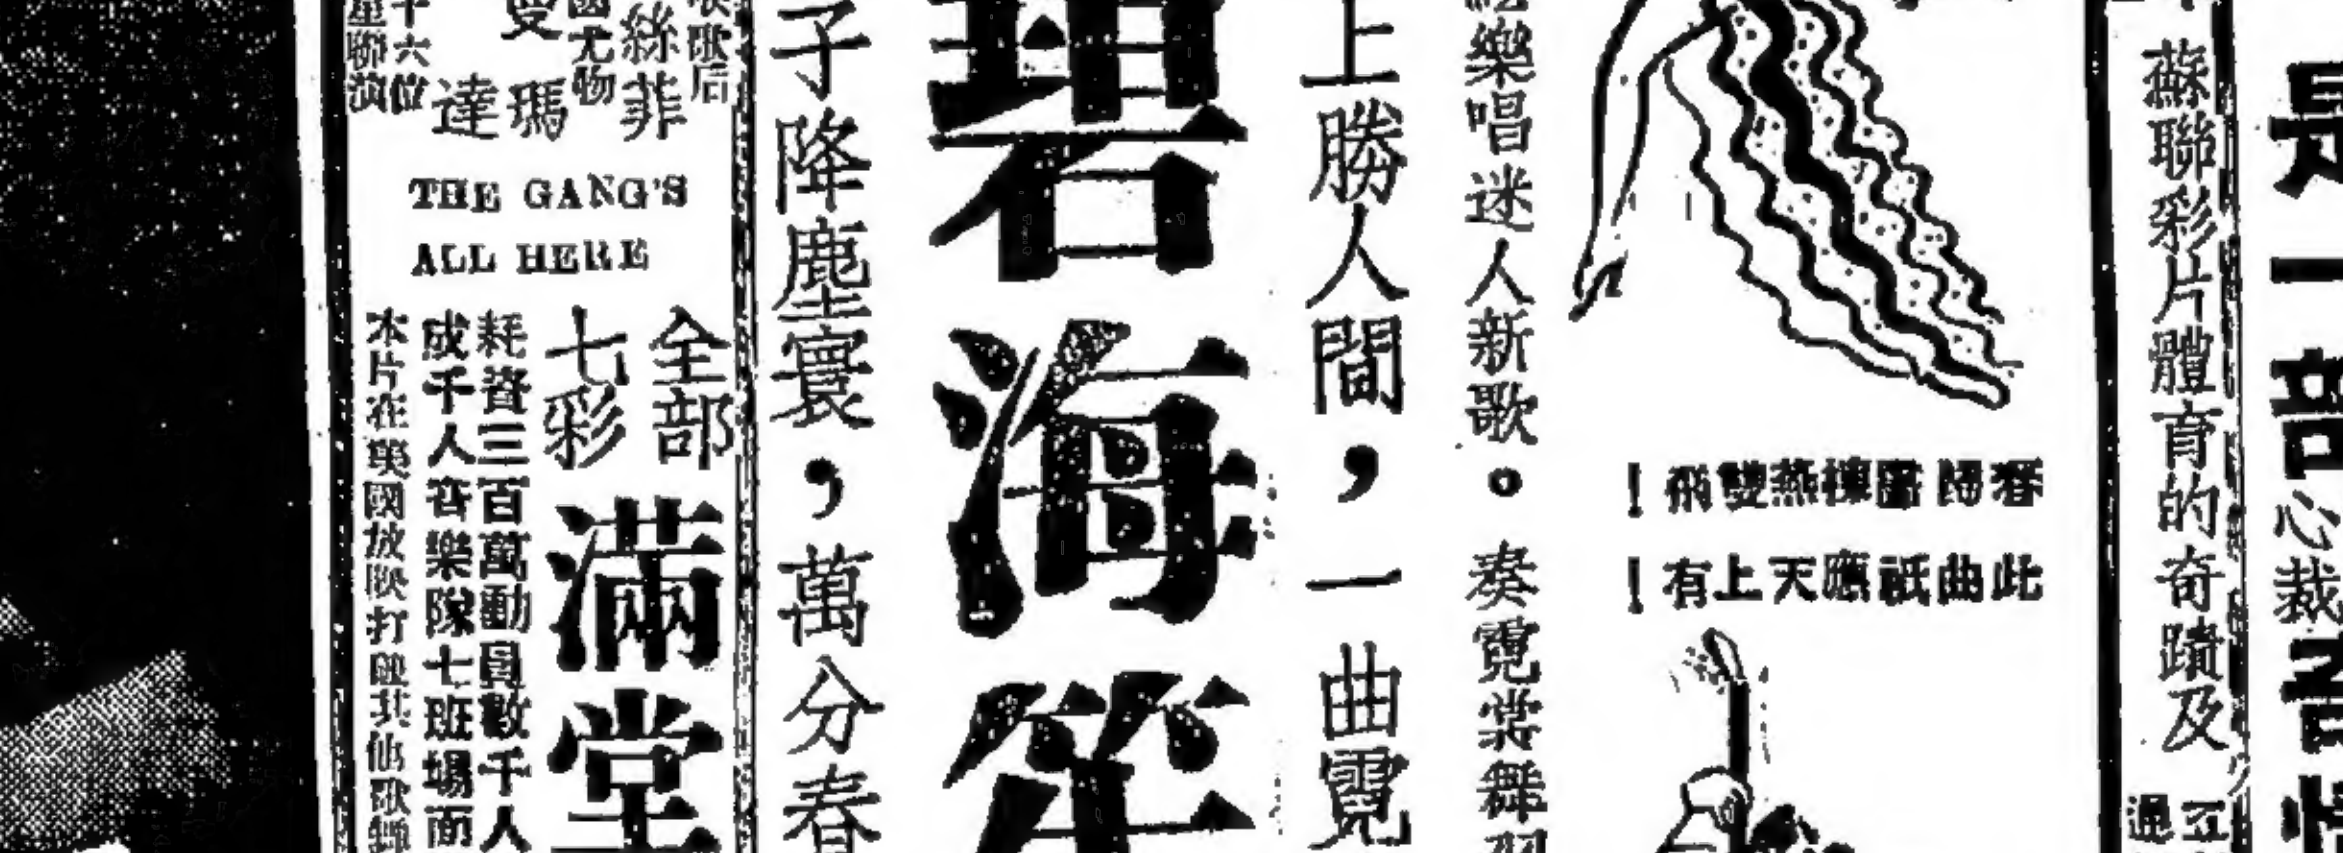 是一部
心裁
蘇聯彩片體育的奇蹟及
春歸畫棟燕雙飛!
此曲祇應天上有!
樂唱迷人新歌。奏霓裳舞
上勝人間,一曲霓
碧海笙
子降塵寰,萬分春
后
絲菲
尤物
雙瑪達
十六位
聯演
THE GANG'S
ALL HERE
全部
七彩
滿堂
耗資三百萬動員數千人
成千人音樂隊七班場面
本片在美國放映打破其他歌舞